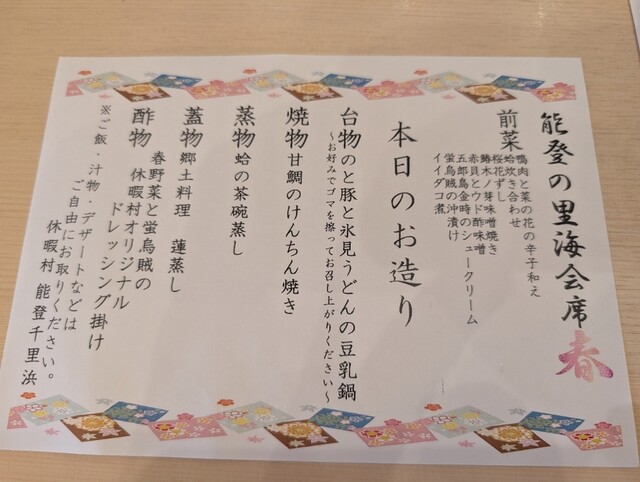 能登の里海会席 春
前菜
鴨肉と菜の花の辛子和え
蛤炊き合わせ
桜花ずし
鰆木ノ芽味噌焼き
赤貝とウド酢味噌
五郎島金時のシュークリーム
蛍烏賊の沖漬け
イイダコ煮
本日のお造り
台物 のと豚と氷見うどんの豆乳鍋
～お好みでゴマを擦ってお召し上がりください～
焼物 甘鯛のけんちん焼き
蒸物 蛤の茶碗蒸し
蓋物 郷土料理 蓮蒸し
酢物 春野菜と蛍烏賊の
休暇村オリジナル
ドレッシング掛け
※ご飯・汁物・デザートなどは
ご自由にお取りください。
休暇村 能登千里浜